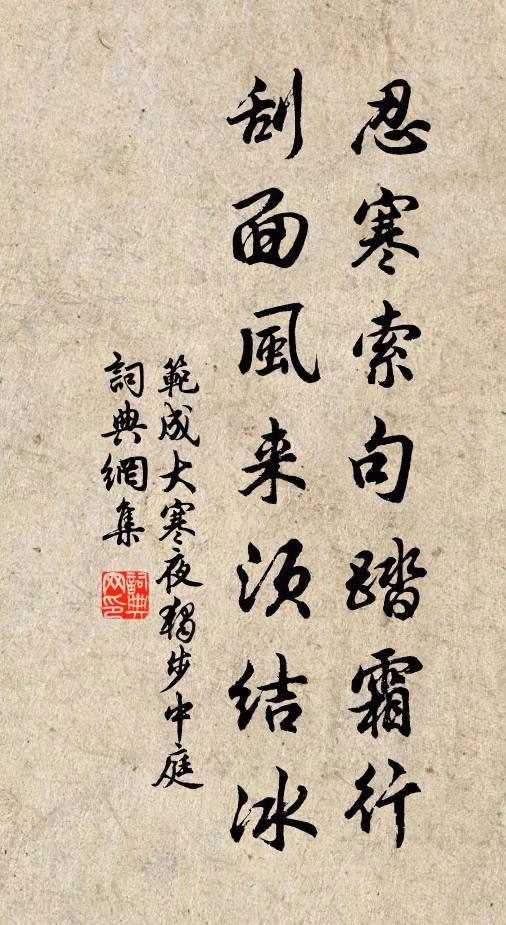 忍寒索句踏霜行
刮面風来須結冰
範成大寒夜獨步中庭
詞典網集
詞典网印